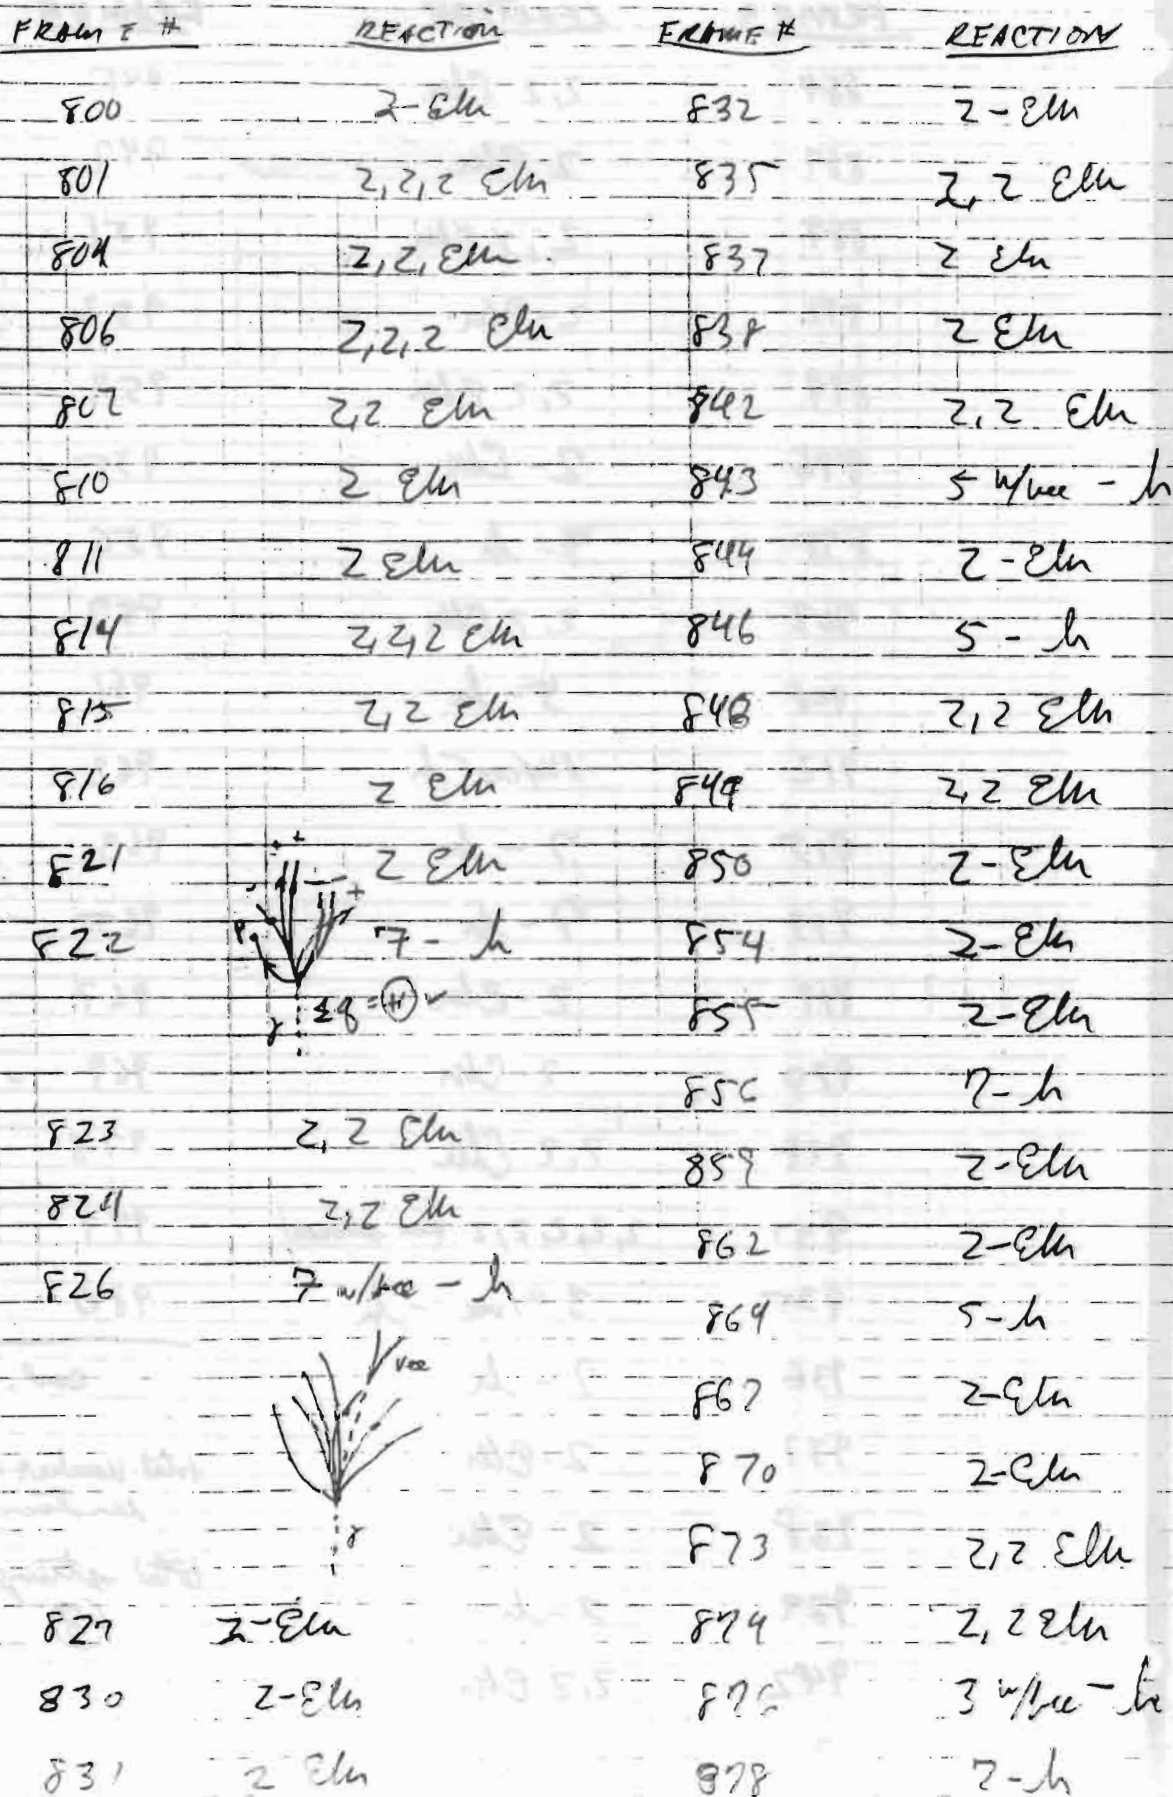 FRAME # REACTION FRAME # REACTION
800 2-Elm 832 2-Elm
801 2,2,2 Elm 835 2,2 Elm
804 2,2, Elm 837 2 Elm
806 2,2,2 Elm 838 2 Elm
807 2,2 Elm 842 2,2 Elm
810 2 Elm 843 5 w/vee - h
811 2 Elm 844 2-Elm
814 2,2,2 Elm 846 5 - h
815 2,2 Elm 848 2,2 Elm
816 2 Elm 849 2,2 Elm
821 2 Elm 850 2-Elm
+ +
- - +
P
822 7 - h 854 2-Elm
γ Σq = + ✓ 855 2-Elm
856 7-h
823 2,2 Elm
859 2-Elm
824 2,2 Elm
862 2-Elm
826 7 w/vee - h
864 5-h
vee
867 2-Elm
870 2-Elm
γ
873 2,2 Elm
827 2-Elm 874 2,2 Elm
830 2-Elm 876 3 w/vee - h
831 2 Elm 878 7-h